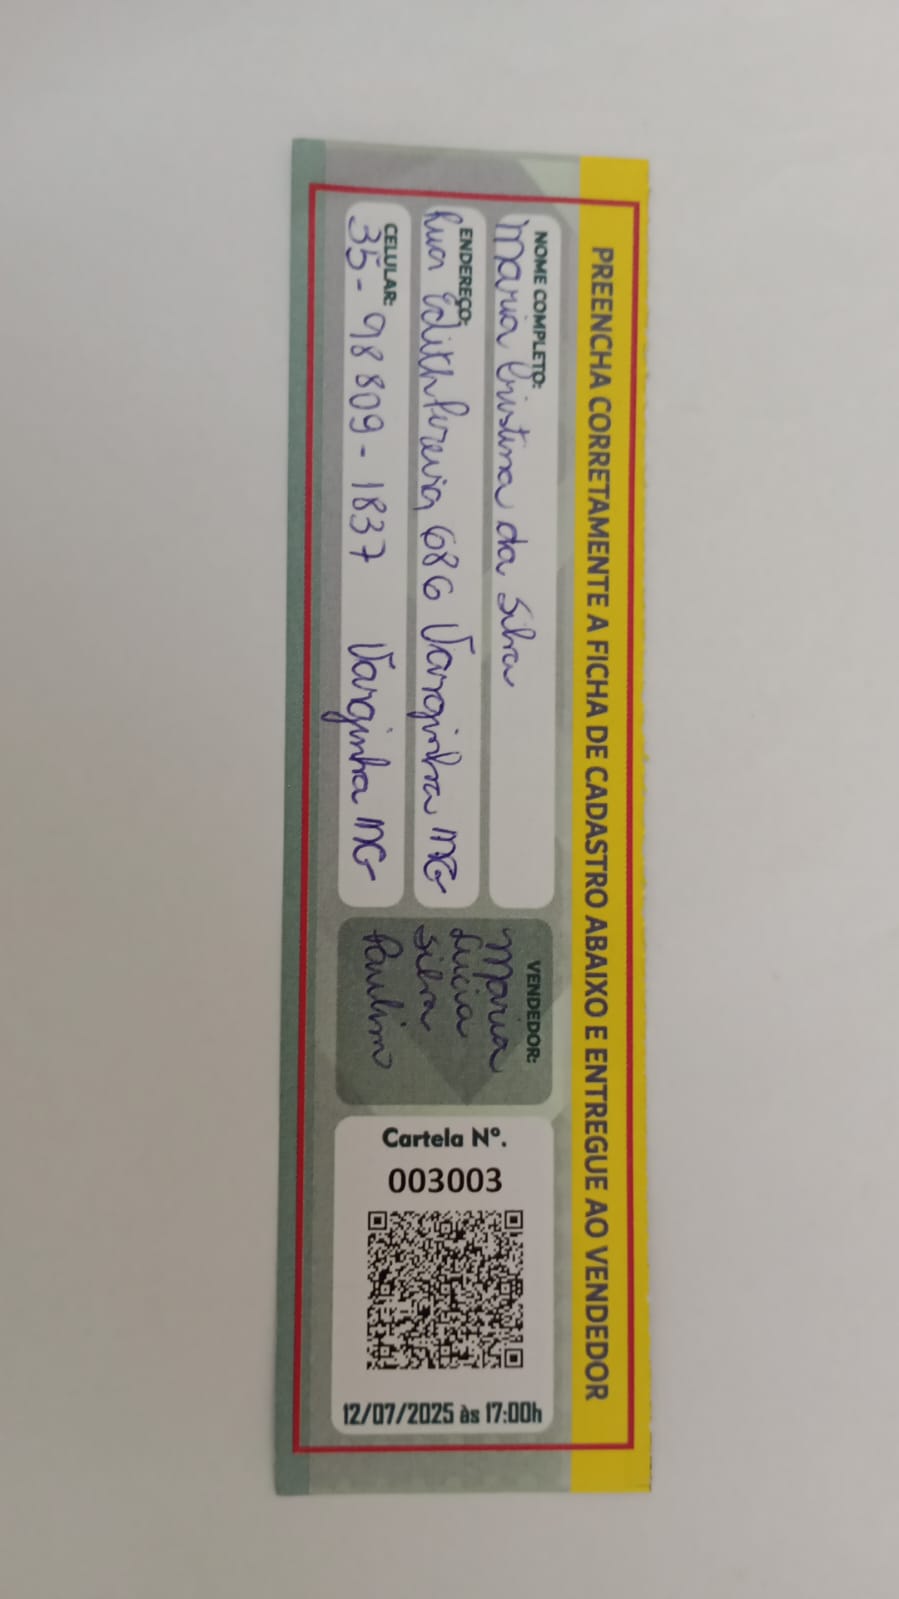 PREENCHA CORRETAMENTE A FICHA DE CADASTRO ABAIXO E ENTREGUE AO VENDEDOR
NOME COMPLETO:
Maria Cristina da Silva
ENDEREÇO:
Rua Edith Pereira 686 Varginha MG
CELULAR:
35-98809-1837 Varginha MG
VENDEDOR:
Maria
Lucia
Silva
Paulim
Cartela Nº.
003003
12/07/2025 às 17:00h